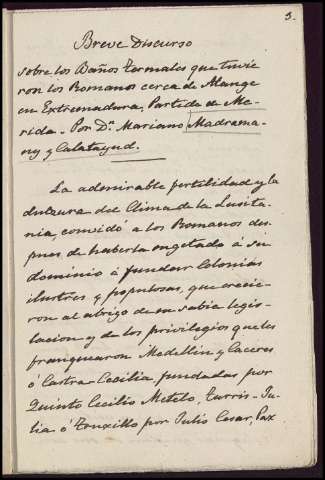 3.
Breve Discurso
sobre los Baños termales que tuvie
ron los Romanos cerca de Alange
en Extremadura, Partido de Me-
rida - Por Dn. Mariano Madrama-
ny y Calatayud.
La admirable fertilidad y la
dulzura del Clima de la Lusita-
nia, convidó a los Romanos des-
pues de haberla sugetado á su
dominio á fundar Colonias
ilustres y populosas, que crecie-
ron al abrigo de su sabia legis-
lacion y de los privilegios que les
franquearon Medellin y Caceres
ó Castra-Cecilia fundadas por
Quinto Cecilio Metelo, Turris-Ju-
lia ó Truxillo por Julio Cesar, Pax